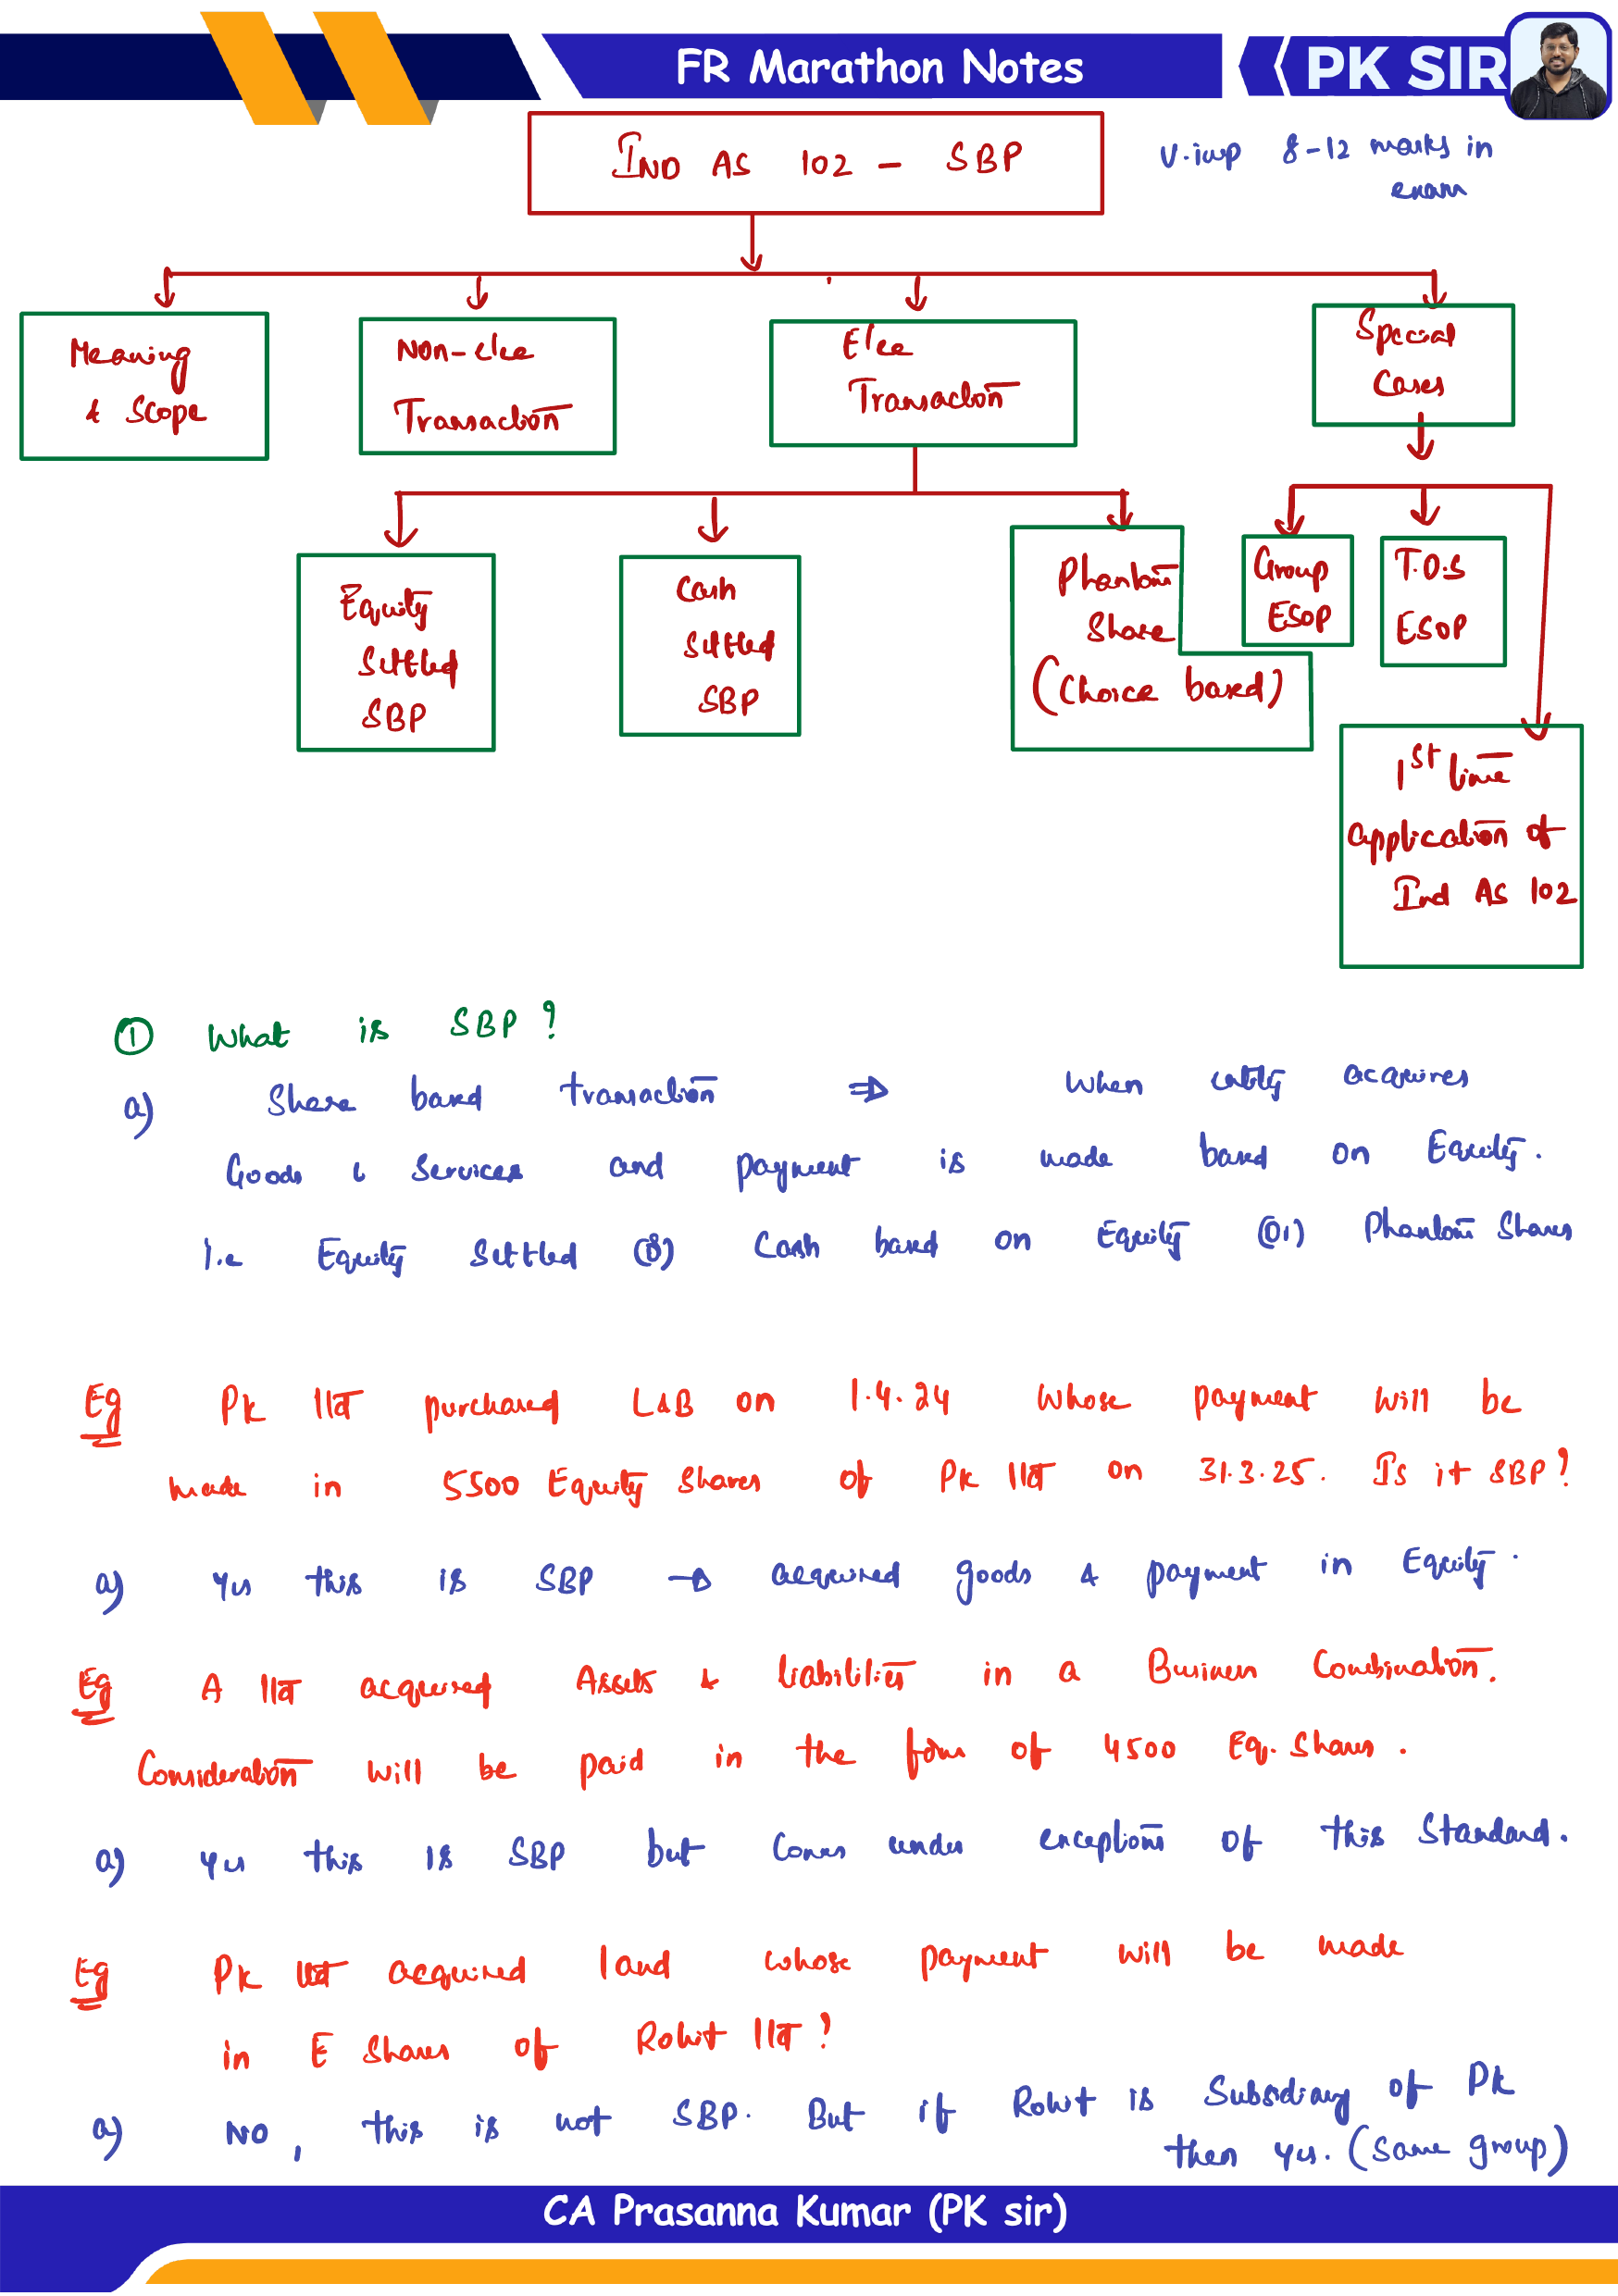 FR Marathon Notes
PK SIR
IND AS 102 - SBP
V.imp 8-12 marks in
exam
Meaning
& Scope
Non-elee
Transaction
Elee
Transaction
Special
Cases
Equity
Settled
SBP
Cash
Settled
SBP
Phantom
Share
(Choice based)
Group
ESOP
T.O.S
ESOP
1st time
application of
Ind AS 102
① What is SBP?
a) Share based transaction ⇒ When entity acquires
Goods & Services and payment is made based on Equity.
i.e Equity Settled (or) Cash based on Equity (or) Phantom Shares
Eg PK ltd purchased L&B on 1.4.24 whose payment will be
made in 5500 Equity Shares of PK ltd on 31.3.25. Is it SBP?
a) Yes this is SBP → acquired goods & payment in Equity.
Eg A ltd acquired Assets & liabilities in a Business Combination.
Consideration will be paid in the form of 4500 Eq. Shares.
a) Yes this is SBP but comes under exceptions of this Standard.
Eg PK ltd acquired land whose payment will be made
in E Shares of Rohit ltd?
a) NO, this is not SBP. But if Rohit is Subsidiary of PK
then yes. (Same group)
CA Prasanna Kumar (PK sir)